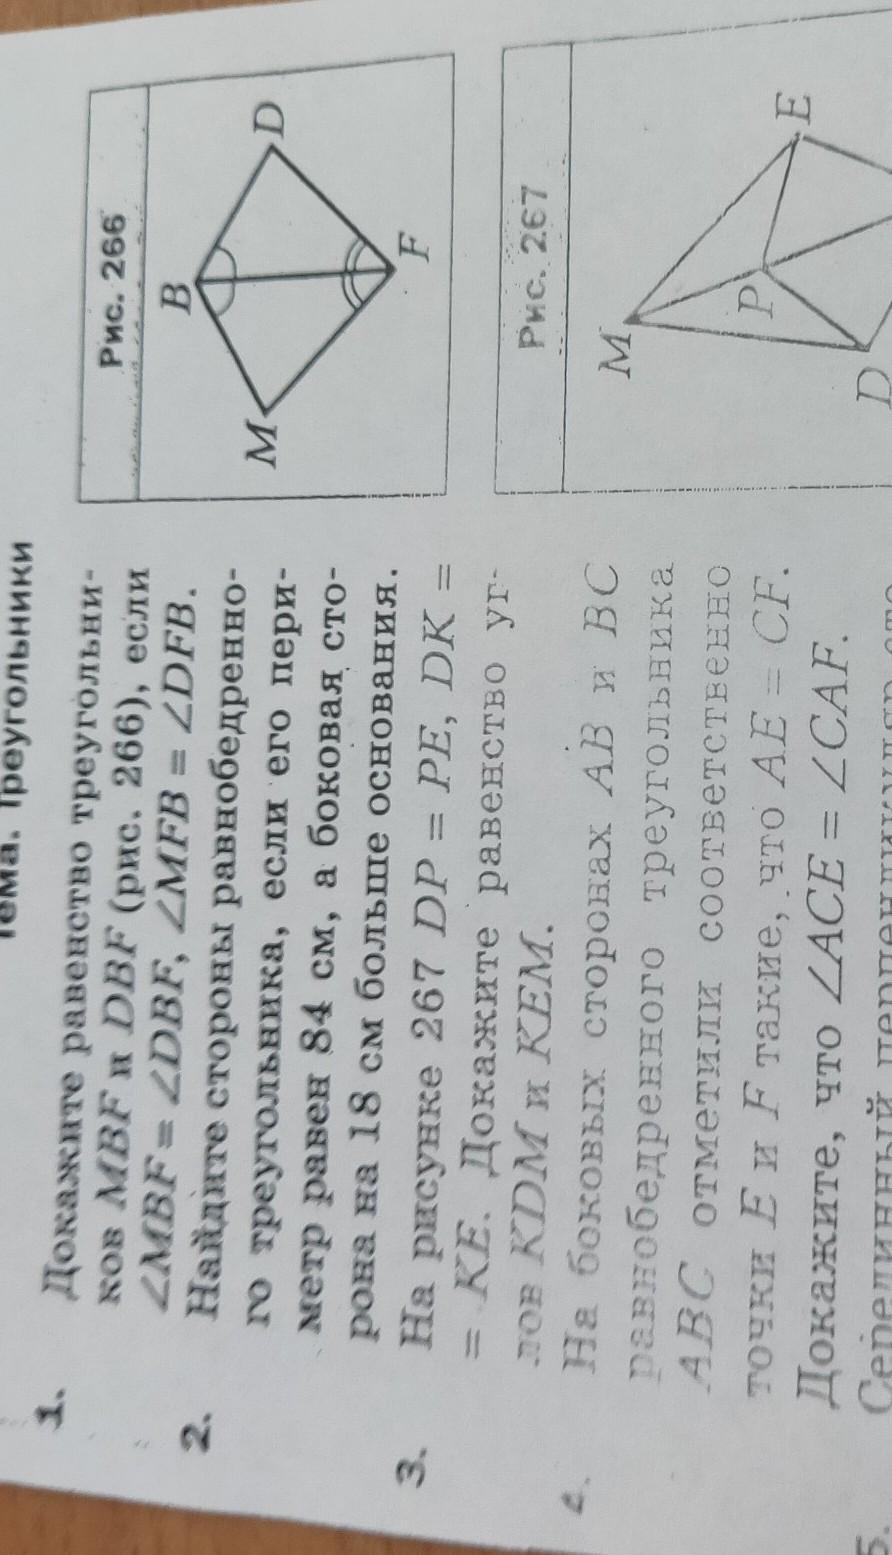 Тема. Треугольники
1. Докажите равенство треугольни-
ков MBF и DBF (рис. 266), если
∠MBF = ∠DBF, ∠MFB = ∠DFB.
2. Найдите стороны равнобедренно-
го треугольника, если его пери-
метр равен 84 см, а боковая сто-
рона на 18 см больше основания.
3. На рисунке 267 DP = PE, DK =
= KE. Докажите равенство уг-
лов KDM и KEM.
4. На боковых сторонах AB и BC
равнобедренного треугольника
ABC отметили соответственно
точки E и F такие, что AE = CF.
Докажите, что ∠ACE = ∠CAF.
5. Серединный перпендикуляр
Рис. 266
B
M
D
F
Рис. 267
M
P
E
D